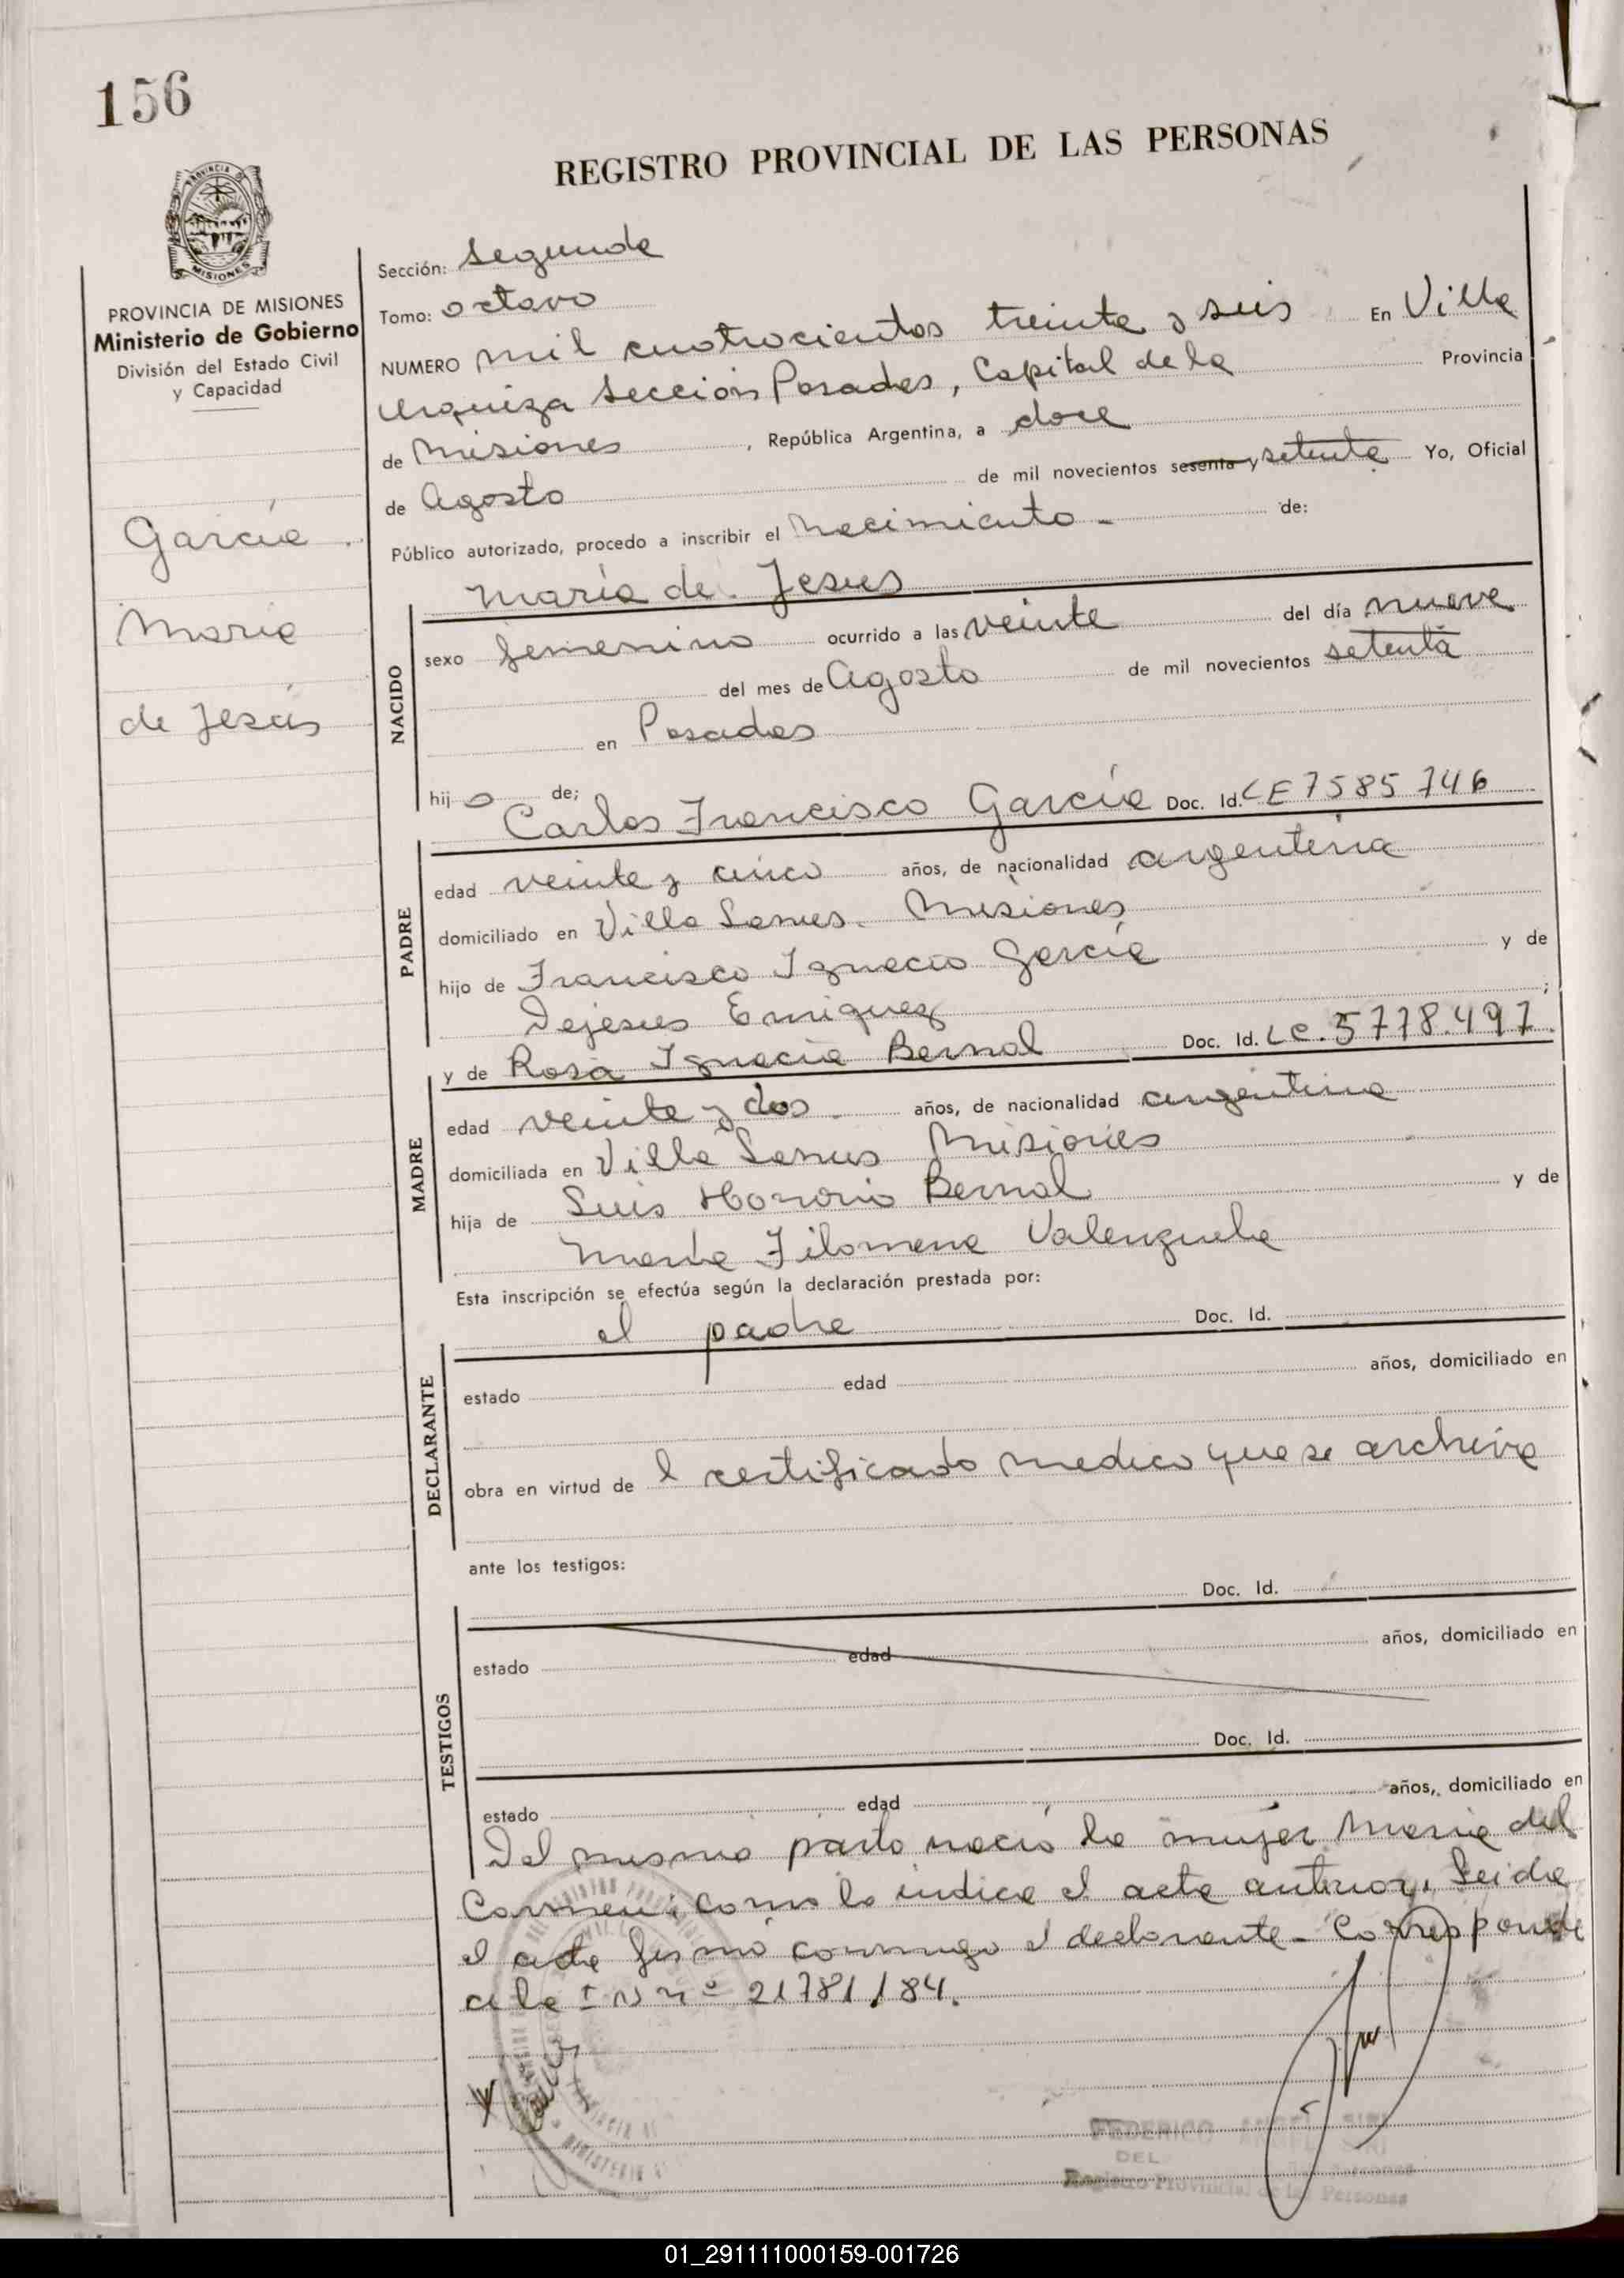 156
REGISTRO PROVINCIAL DE LAS PERSONAS
PROVINCIA DE MISIONES
Ministerio de Gobierno
División del Estado Civil
y Capacidad
García
María
de Jesús
Sección: Segunda
Tomo: octavo
NUMERO mil cuatrocientos treinta y seis En Villa
Urquiza Sección Posadas, Capital de la Provincia
de Misiones, República Argentina, a doce
de Agosto de mil novecientos sesenta y setenta Yo, Oficial
Público autorizado, procedo a inscribir el Nacimiento - de:
María de Jesus
NACIDO
sexo femenino ocurrido a las veinte del día nueve
del mes de Agosto de mil novecientos setenta
en Posadas
hijo de;
Carlos Francisco García Doc. Id. LE 7585746
PADRE
edad veinte y cinco años, de nacionalidad argentina
domiciliado en Villa Lanus. Misiones
hijo de Francisco Ignacio García y de
Dejesus Enriquez ;
y de Rosa Ignacia Bernal Doc. Id. LC. 5778.497.
MADRE
edad veinte y dos años, de nacionalidad argentina
domiciliada en Villa Lanus Misiones
hija de Luis Honorio Bernal y de
Filomena Valenzuela
Esta inscripción se efectúa según la declaración prestada por:
el padre Doc. Id.
DECLARANTE
estado edad años, domiciliado en
obra en virtud de l certificado medico que se archiva
ante los testigos:
Doc. Id.
TESTIGOS
estado edad años, domiciliado en
Doc. Id.
estado edad años, domiciliado en
Del mismo parto nació la mujer María del
Carmen; como lo indica el acta anterior. Leida
el acta firmó conmigo el declarante - Corresponde
a la nº 21781/84.
FEDERICO ANGEL
DEL
Registro Provincial de las Personas
01_291111000159-001726